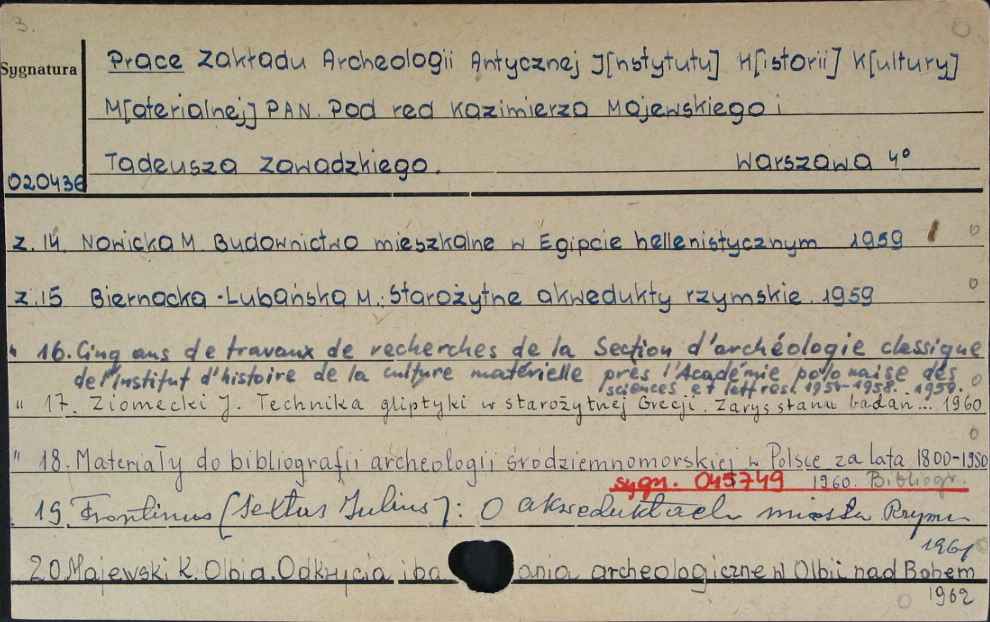 3.
Prace Zakładu Archeologii Antycznej I[nstytutu] H[istorii] K[ultury]
Sygnatura
M[aterialnej] PAN. Pod red Kazimierza Majewskiego i
Tadeusza Zawadzkiego. Warszawa 4°
020436
z. 14. Nowicka M Budownictwo mieszkalne w Egipcie hellenistycznym 1959
z. 15 Biernacka-Lubańska M. Starożytne akwedukty rzymskie. 1959
" 16. Cinq ans de travaux de recherches de la Section d'archéologie classique
de l'Institut d'histoire de la culture matérielle près l'Académie polonaise des
sciences et lettres. 1954-1958. 1959.
" 17. Ziomecki J. Technika gliptyki w starożytnej Grecji. Zarys stanu badań... 1960
" 18. Materiały do bibliografii archeologii śródziemnomorskiej w Polsce za lata 1800-1950
sygn. 045749 1960. Bibliogr.
19. Frontinus [Sextus Julius]: O akweduktach miasta Rzymu
1961
20 Majewski K. Olbia. Odkrycia i ba ania archeologiczne w Olbii nad Bohem
1962